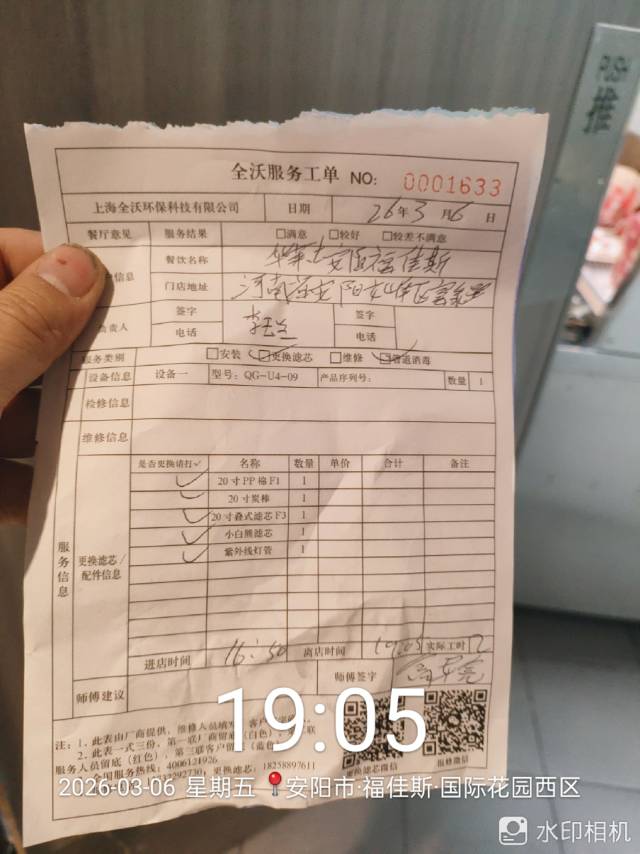 PUSH
推
全沃服务工单 NO: 0001633
上海全沃环保科技有限公司 日期 26年3月6日
餐厅意见 服务结果 □满意 □较好 □较差不满意
信息 餐饮名称 福佳斯
门店地址 河南省安阳
负责人 签字 签字
电话 电话
服务类别 □安装 □更换滤芯 □维修 □管道消毒
设备信息 设备一 型号: QG-U4-09 产品序列号: 数量 1
检修信息
维修信息
服务信息
更换滤芯/配件信息
是否更换请打✓ 名称 数量 单价 合计 备注
✓ 20寸PP棉F1 1
✓ 20寸炭棒 1
✓ 20寸叠式滤芯F3 1
✓ 小白熊滤芯 1
✓ 紫外线灯管 1
进店时间 16:50 离店时间 19:05 实际工时 2
师傅建议 师傅签字
注: 1、此表由厂商提供, 维修人员填写
2、此表一式三份, 第一联厂商留底(白色)
服务人员留底(红色), 第三联客户留 (蓝色)
全国服务热线: 4006121926
更换滤芯: 18258897611
更换滤芯微信 报修微信
19:05
2026-03-06 星期五 安阳市·福佳斯·国际花园西区
水印相机